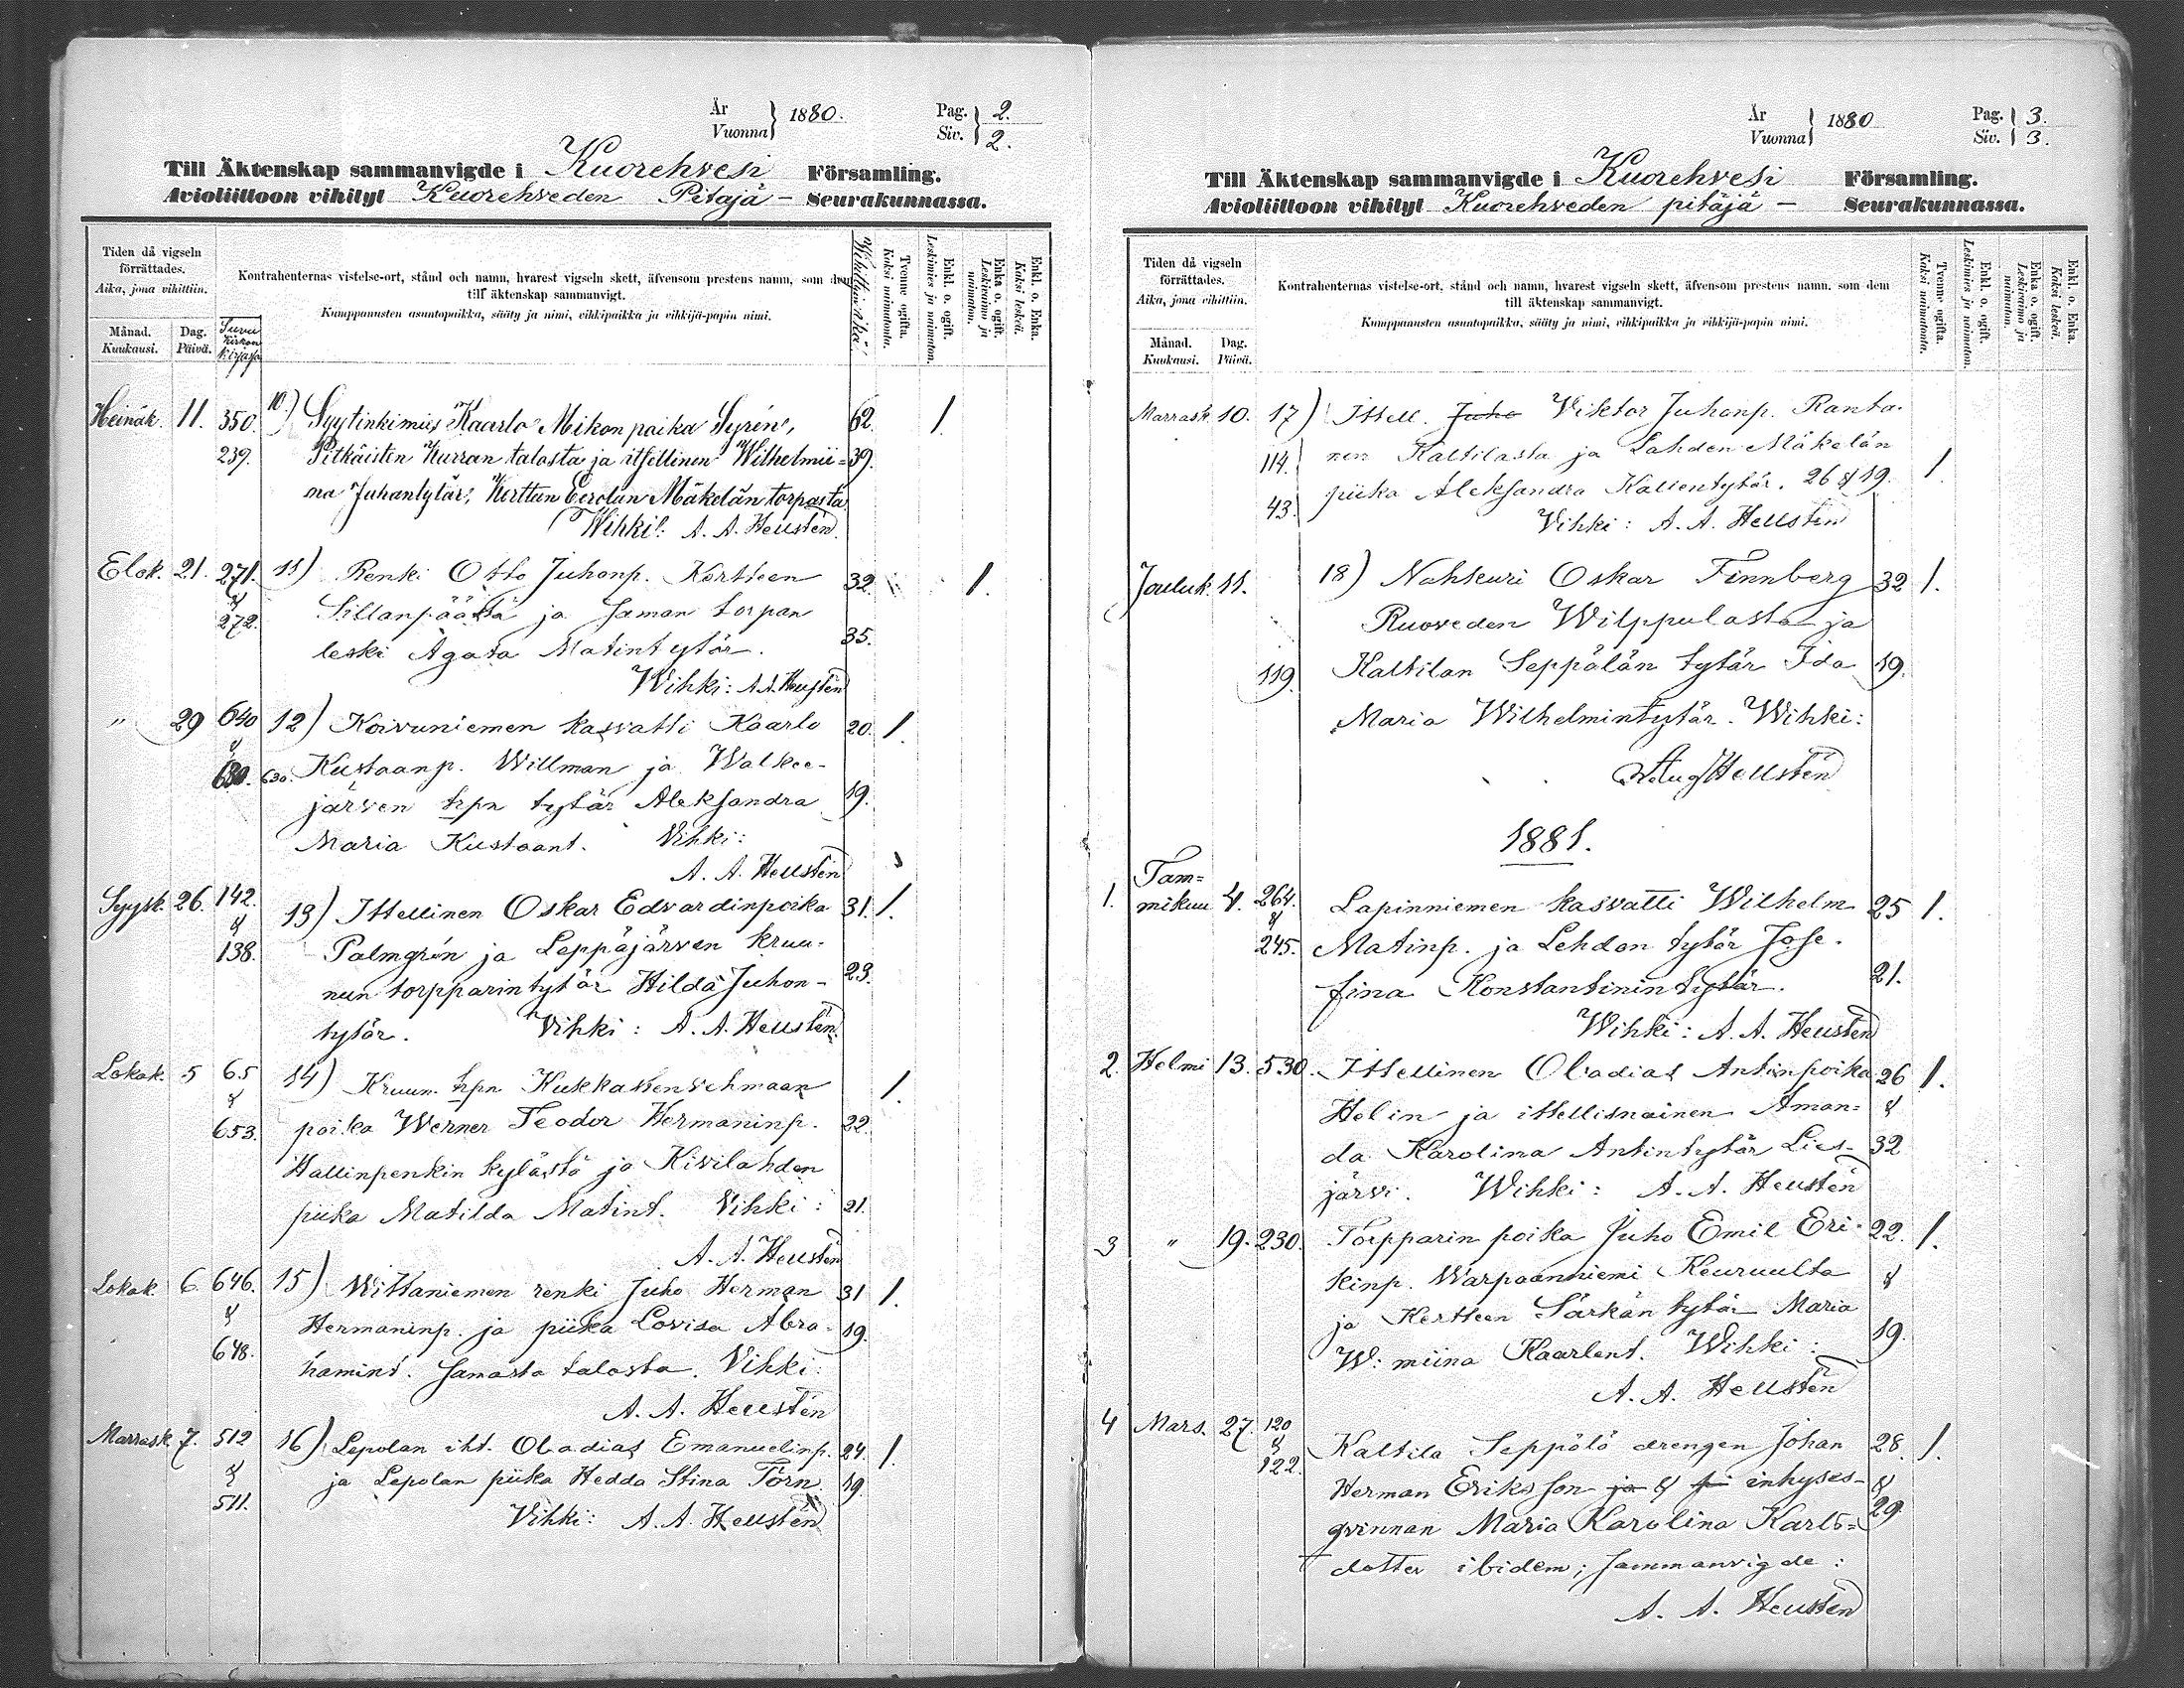 År
Vuonna } 1880.
Pag. 2.
Siv. 2.
Till Äktenskap sammanvigde i Kuorehvesi Församling.
Avioliittoon vihityt Kuorehveden Pitäjä- Seurakunnassa.
Tiden då vigseln förrättades.
Aika, jona vihittiin.
Månad. Kuukausi.
Dag. Päivä.
Suvu kirkon kirjassa
Kontrahenternas vistelse-ort, stånd och namn, hvarest vigseln skett, äfvensom prestens namn, som dem
till äktenskap sammanvigt.
Kumppanusten asuntopaikka, sääty ja nimi, vihkipaikka ja vihkijä-papin nimi.
Wihittyin ikä
Tvenne ogifta. Kaksi naimatonta.
Enkl. o. ogift. Leskimies ja naimaton.
Enka o. ogift. Leskivaimo ja naimaton.
Enkl. o. Enka. Kaksi leskeä.
Heinäk. 11. 350. 10) Syytinkimies Kaarlo Mikonpoika Syrén, 62. 1.
239. Pitkäisten Kurran talosta ja itsellinen Wilhelmii- 39.
na Juhantytär, Kerttun Eerolan Mäkelän torpasta
Wihki: A. A. Hellstén
Elok. 21. 271. 11) Renki Otto Juhonp. Kertteen 32. 1.
& 272. Sillanpäästä ja saman torpan
leski Agata Matintytär. 35.
Wihki: A. A. Hellstén
" 29 640 12) Koivuniemen kasvatti Kaarlo 20. 1.
& 680. 630. Kustaanp. Willman ja Walkee-
järven trpn tytär Aleksandra 19.
Maria Kustaant. Vihki:
A. A. Hellstén
Syysk. 26. 142. 13) Itsellinen Oskar Edvardinpoika 31. 1.
& 138. Palmgrén ja Leppäjärven kruu-
nun torpparin tytär Hilda Juhon- 23.
tytär. Vihki: A. A. Hellstén
Lokak. 5 65 14) Kruun. trpn Kukkassenvehmaan 1.
& 653. poika Werner Teodor Hermaninp. 22.
Hallinpenkin kylästä ja Kivilahden
piika Matilda Matint. Vihki: 21.
A. A. Hellstén
Lokak. 6. 646. 15) Wittaniemen renki Juho Herman 31 1.
& Hermaninp. ja piika Lovisa Abra- 19.
648. hamint. samasta talosta. Vihki:
A. A. Hellstén
Marrask. 7. 512 16) Lepolan iht. Obadias Emanuelinp. 24. 1.
& ja Lepolan piika Hedda Stina Törn 19.
511. Vihki: A. A. Hellstén
År
Vuonna } 1880
Pag. 3.
Siv. 3.
Till Äktenskap sammanvigde i Kuorehvesi Församling.
Avioliittoon vihityt Kuorehveden pitäjä- Seurakunnassa.
Tiden då vigseln förrättades.
Aika, jona vihittiin.
Månad. Kuukausi.
Dag. Päivä.
Kontrahenternas vistelse-ort, stånd och namn, hvarest vigseln skett, äfvensom prestens namn, som dem
till äktenskap sammanvigt.
Kumppanusten asuntopaikka, sääty ja nimi, vihkipaikka ja vihkijä-papin nimi.
Tvenne ogifta. Kaksi naimatonta.
Enkl. o. ogift. Leskimies ja naimaton.
Enka o. ogift. Leskivaimo ja naimaton.
Enkl. o. Enka. Kaksi leskeä.
Marrask. 10. 17) Itsell. Juho Viktor Juhonp. Ranta-
114. nen Kaltilasta ja Lahden Mäkelän
43. piika Aleksandra Kallentytär. 26 & 19. 1
Vihki: A. A. Hellstén
Jouluk. 11. 18) Nahkuri Oskar Finnberg 32 1.
Ruoveden Wilppulasta ja
119. Kaltilan Seppälän tytär Ida 19.
Maria Wilhelmintytär. Wihki:
Aug Hellstén
1881.
1. Tam-
mikuu 4. 264. Lapinniemen kasvatti Wilhelm 25 1.
& 245. Matinp. ja Lehdon tytär Jose-
fina Konstantinintytär. 21.
Wihki: A. A. Hellstén
2. Helmi 13. 530. Itsellinen Obadias Antinpoika 26 1.
Helin ja itsellisnainen Aman- &
da Karolina Antintytär Lies- 32
järvi. Wihki: A. A. Hellstén
3 " 19. 230. Torpparin poika Juho Emil Eri- 22. 1.
kinp. Warpaanniemi Keuruulta &
ja Kertteen Särkän tytär Maria
W:miina Kaarlent. Wihki: 19.
A. A. Hellstén
4 Mars. 27. 120 & 122. Kaltila Seppälä drengen Johan 28. 1.
Herman Eriksson ja & pi inhyses- &
qvinnan Maria Karolina Karls- 29.
dotter ibidem; sammanvigde:
A. A. Hellstén